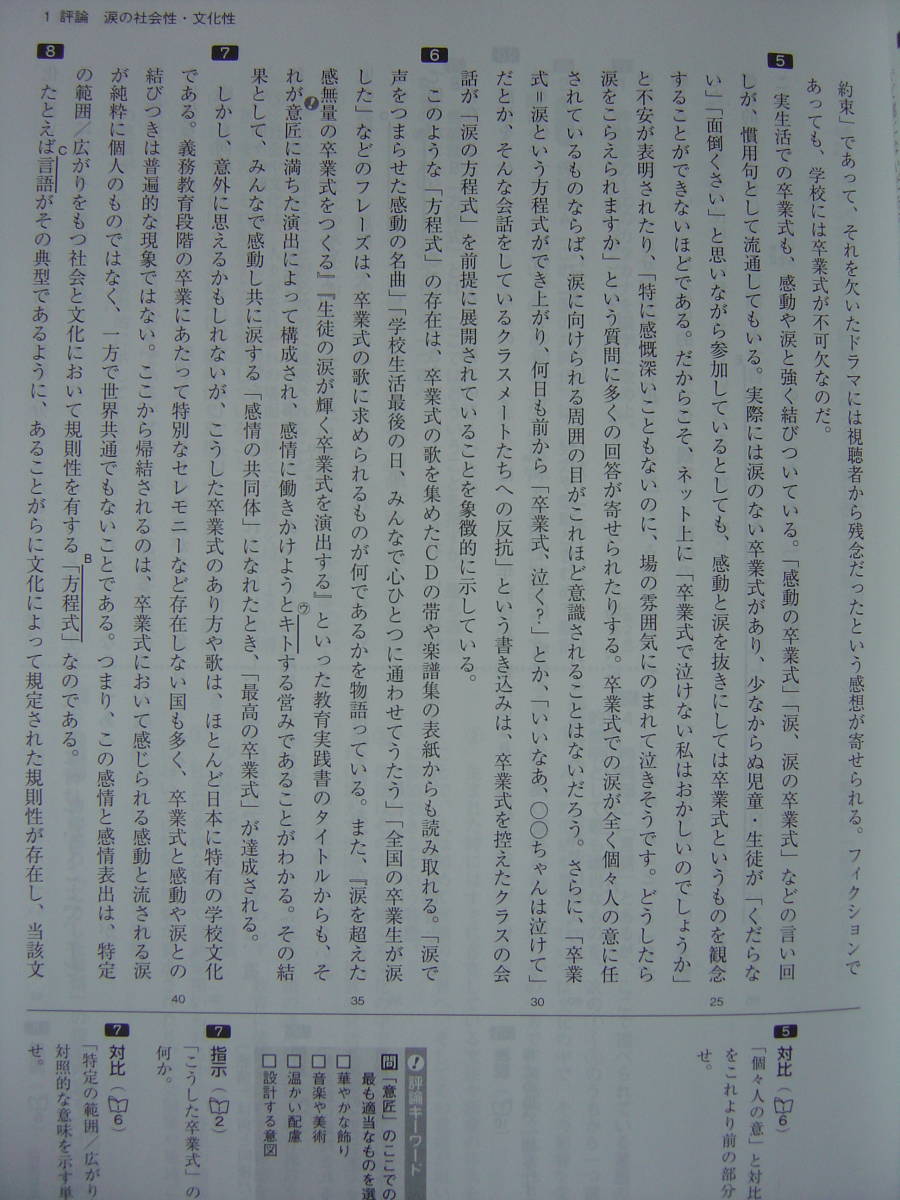 1 評論 涙の社会性・文化性
約束」であって、それを欠いたドラマには視聴者から残念だったという感想が寄せられる。フィクションで
あっても、学校には卒業式が不可欠なのだ。
5 実生活での卒業式も、感動や涙と強く結びついている。「感動の卒業式」「涙、涙の卒業式」などの言い回
しが、慣用句として流通してもいる。実際には涙のない卒業式があり、少なからぬ児童・生徒が「くだらな
い」「面倒くさい」と思いながら参加しているとしても、感動と涙を抜きにしては卒業式というものを観念 25
することができないほどである。だからこそ、ネット上に「卒業式で泣けない私はおかしいのでしょうか」
と不安が表明されたり、「特に感慨深いこともないのに、場の雰囲気にのまれて泣きそうです。どうしたら
涙をこらえられますか」という質問に多くの回答が寄せられたりする。卒業式での涙が全く個々人の意に任
されているものならば、涙に向けられる周囲の目がこれほど意識されることはないだろう。さらに、「卒業
式＝涙という方程式ができ上がり、何日も前から「卒業式、泣く？」とか、「いいなあ、〇〇ちゃんは泣けて」 30
だとか、そんな会話をしているクラスメートたちへの反抗」という書き込みは、卒業式を控えたクラスの会
話が「涙の方程式」を前提に展開されていることを象徴的に示している。
6 このような「方程式」の存在は、卒業式の歌を集めたCDの帯や楽譜集の表紙からも読み取れる。「涙で
声をつまらせた感動の名曲」「学校生活最後の日、みんなで心ひとつに通わせてうたう」「全国の卒業生が涙
した」などのフレーズは、卒業式の歌に求められるものが何であるかを物語っている。また、『涙を超えた 35
感無量の卒業式をつくる』『生徒の涙が輝く卒業式を演出する』といった教育実践書のタイトルからも、そ
れが意匠に満ちた演出によって構成され、感情に働きかけようとキトする営みであることがわかる。その結
果として、みんなで感動し共に涙する「感情の共同体」になれたとき、「最高の卒業式」が達成される。
7 しかし、意外に思えるかもしれないが、こうした卒業式のあり方や歌は、ほとんど日本に特有の学校文化
である。義務教育段階の卒業にあたって特別なセレモニーなど存在しない国も多く、卒業式と感動や涙との 40
結びつきは普遍的な現象ではない。ここから帰結されるのは、卒業式において感じられる感動と流される涙
が純粋に個人のものではなく、一方で世界共通でもないことである。つまり、この感情と感情表出は、特定
の範囲／広がりをもつ社会と文化において規則性を有する「方程式」なのである。
8 たとえば言語がその典型であるように、あることがらに文化によって規定された規則性が存在し、当該文
ウ
B
C
5 対比（6）
「個々人の意」と対比
をこれより前の部分
せ。
! 評論キーワード
問「意匠」のここでの
最も適当なものを選
□華やかな飾り
□音楽や美術
□温かい配慮
□設計する意図
7 指示（2）
「こうした卒業式」の
何か。
7 対比（6）
「特定の範囲／広がり
対照的な意味を示す単
せ。